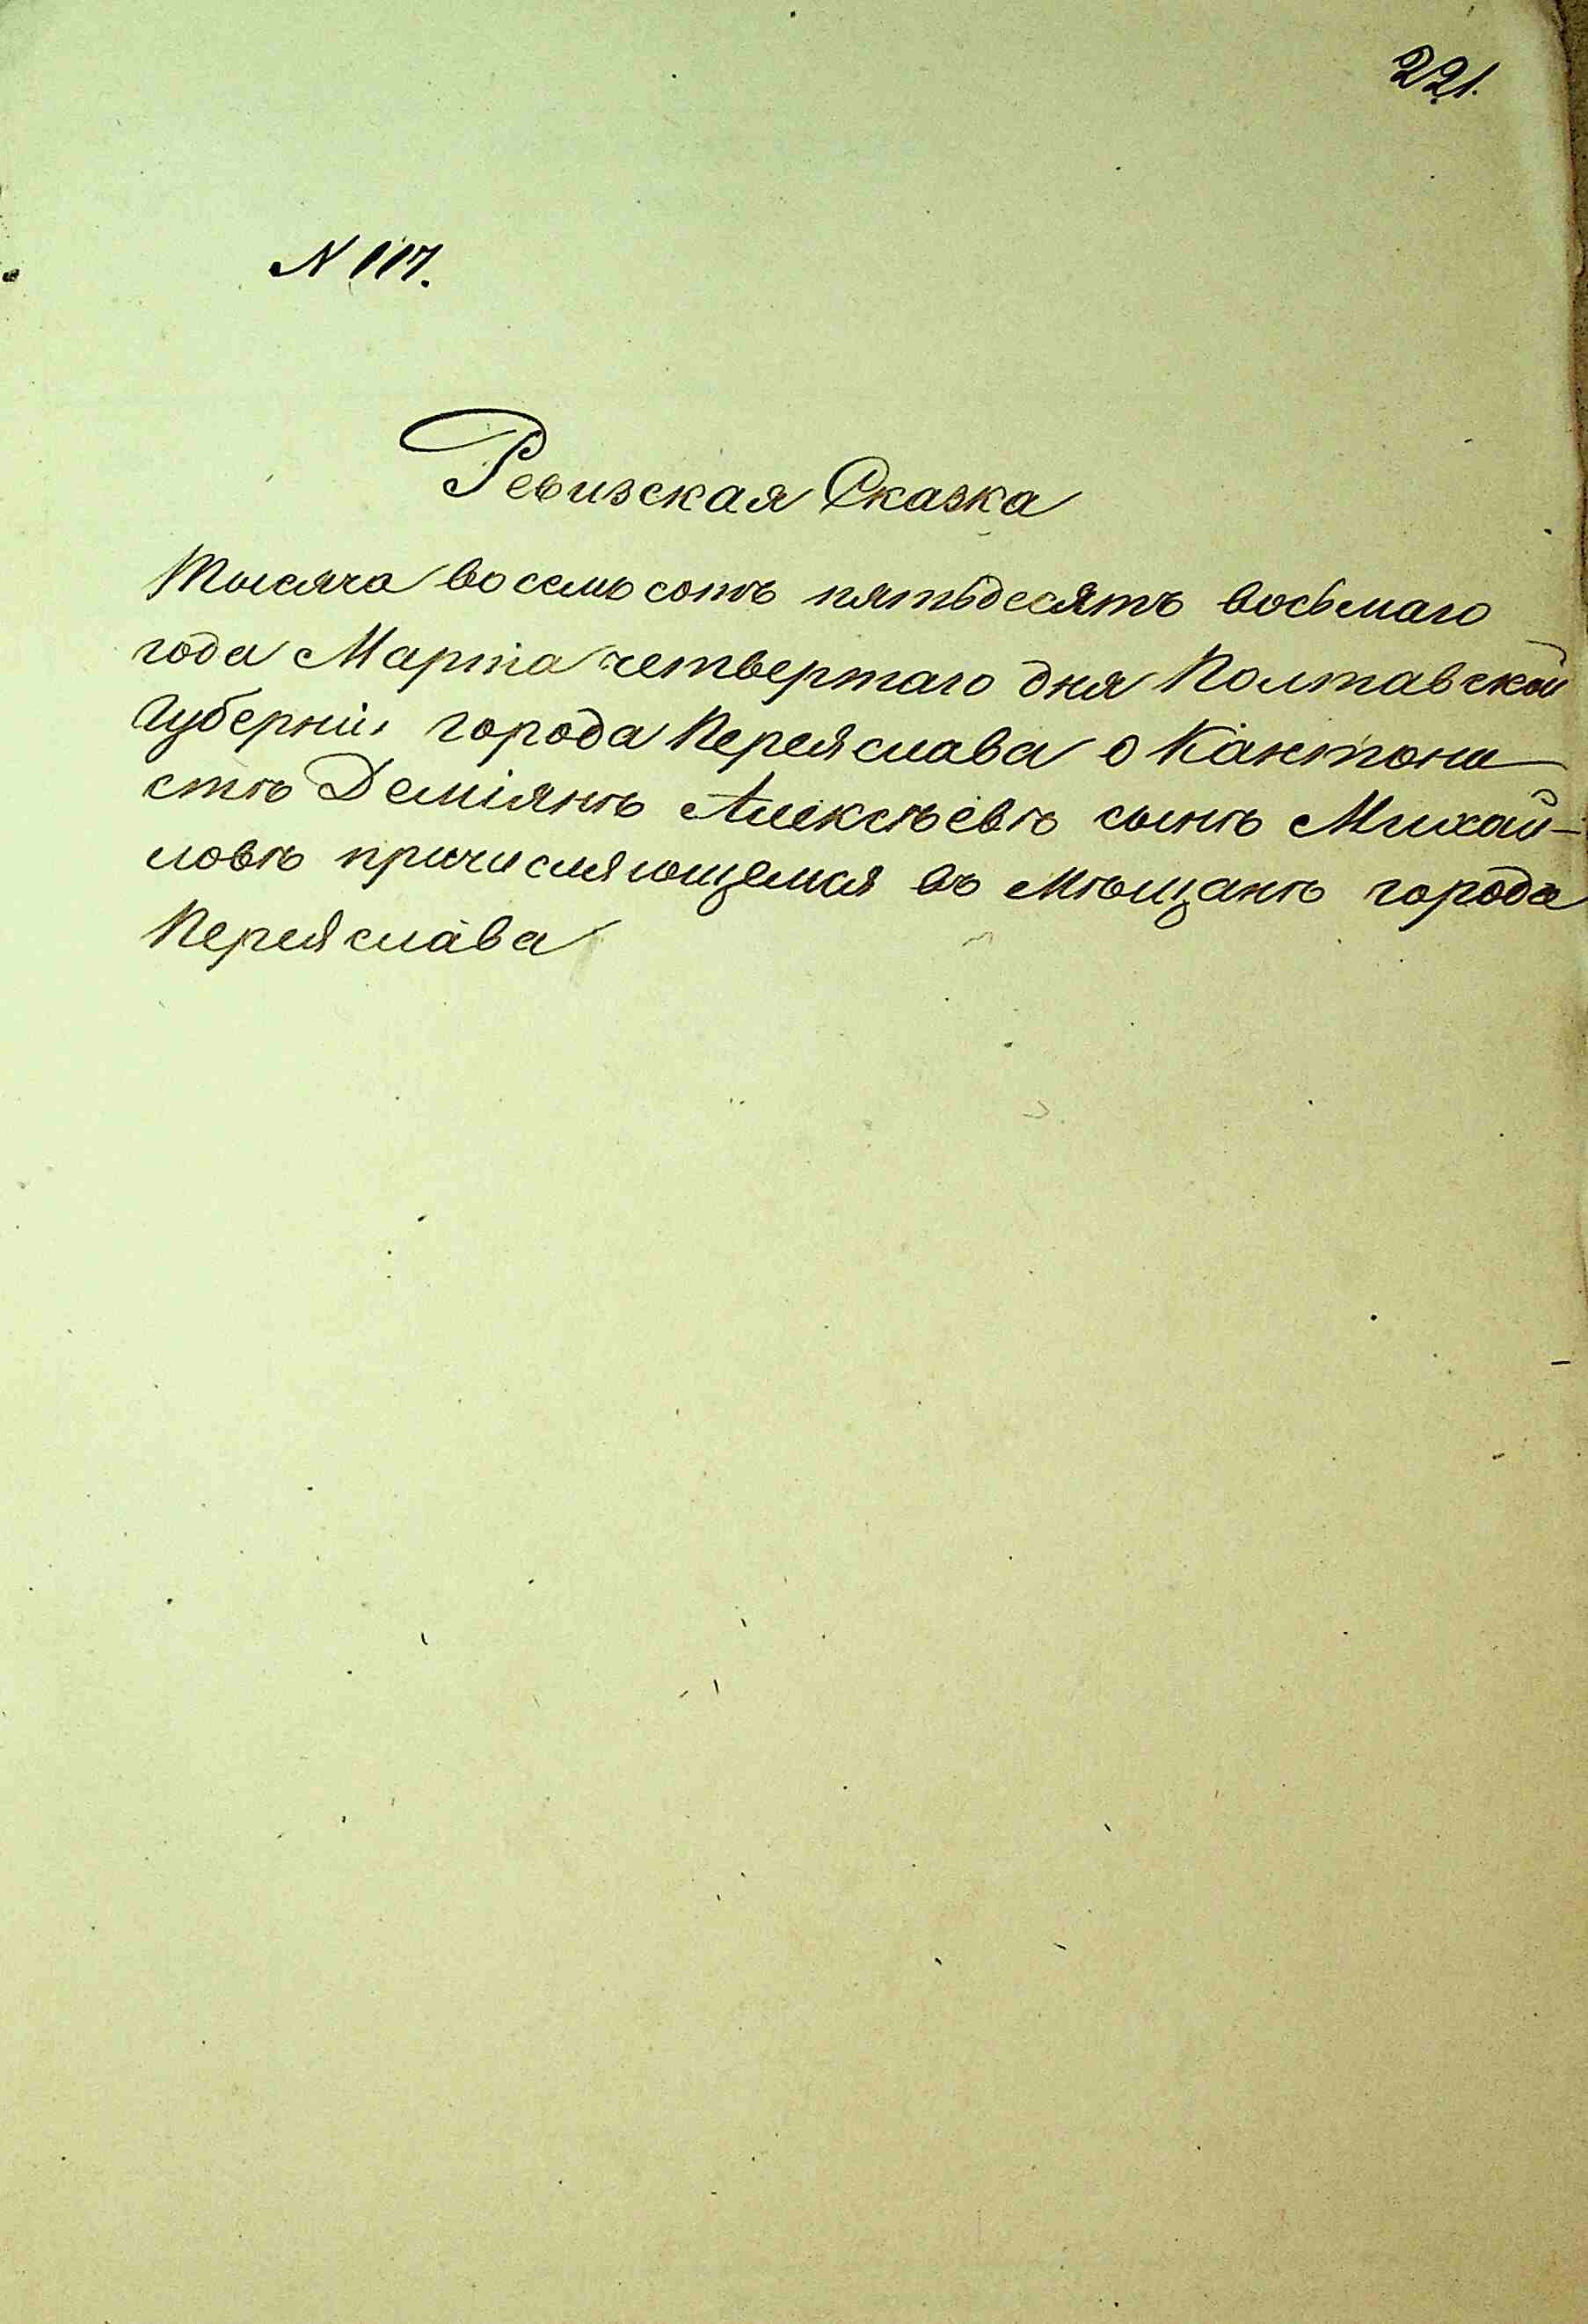 221.
N 117.
Ревизская Сказка
Тысяча восемь сотъ пятьдесятъ восьмаго
года Марта четвертаго дня Полтавской
Губерніи города Переяслава о Кантони
стѣ Деміянѣ Алексѣевѣ сынѣ Михай-
ловѣ причисляющемся въ мѣщанѣ города
Переяслава